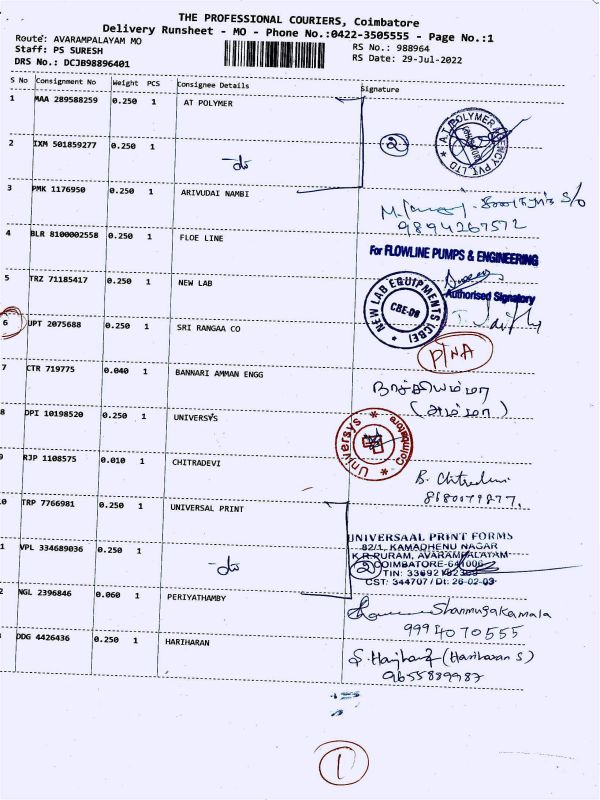 THE PROFESSIONAL COURIERS, Coimbatore
Delivery Runsheet - MO - Phone No.:0422-3505555 - Page No.:1
Route: AVARAMPALAYAM MO
Staff: PS SURESH
DRS No.: DCJB98896401
RS No.: 988964
RS Date: 29-Jul-2022
S No Consignment No Weight PCS Consignee Details Signature
1 MAA 289588259 0.250 1 AT POLYMER
A.T. POLYMER AGENCY PVT. LTD
2 IXM 501859277 0.250 1
2
3 PMK 1176950 0.250 1 ARIVUDAI NAMBI
S/O
9894267572
4 BLR 8100002558 0.250 1 FLOE LINE
For FLOWLINE PUMPS & ENGINEERING
Authorised Signatory
5 TRZ 71185417 0.250 1 NEW LAB
NEW LAB EQUIPMENTS (CBE)
CBE-08
6 UPT 2075688 0.250 1 SRI RANGAA CO
P/NA
7 CTR 719775 0.040 1 BANNARI AMMAN ENGG
நாச்சியம்மா
(அம்மா)
8 DPI 10198520 0.250 1 UNIVERSYS
Universys Coimbatore
9 RJP 1108575 0.010 1 CHITRADEVI
B. Chitradevi
0 TRP 7766981 0.250 1 UNIVERSAL PRINT
UNIVERSAAL PRINT FORMS
82/1, KAMADHENU NAGAR
K.R.PURAM, AVARAMPALAYAM
COIMBATORE-641006
1 VPL 334689036 0.250 1
2
TIN: 33692
CST: 344707 / Dt: 26-02-03
2 NGL 2396846 0.060 1 PERIYATHAMBY
Shanmugakamala
9994070555
3 DDG 4426436 0.250 1 HARIHARAN
S. Hariharan (Hariharan S)
9655889987
1